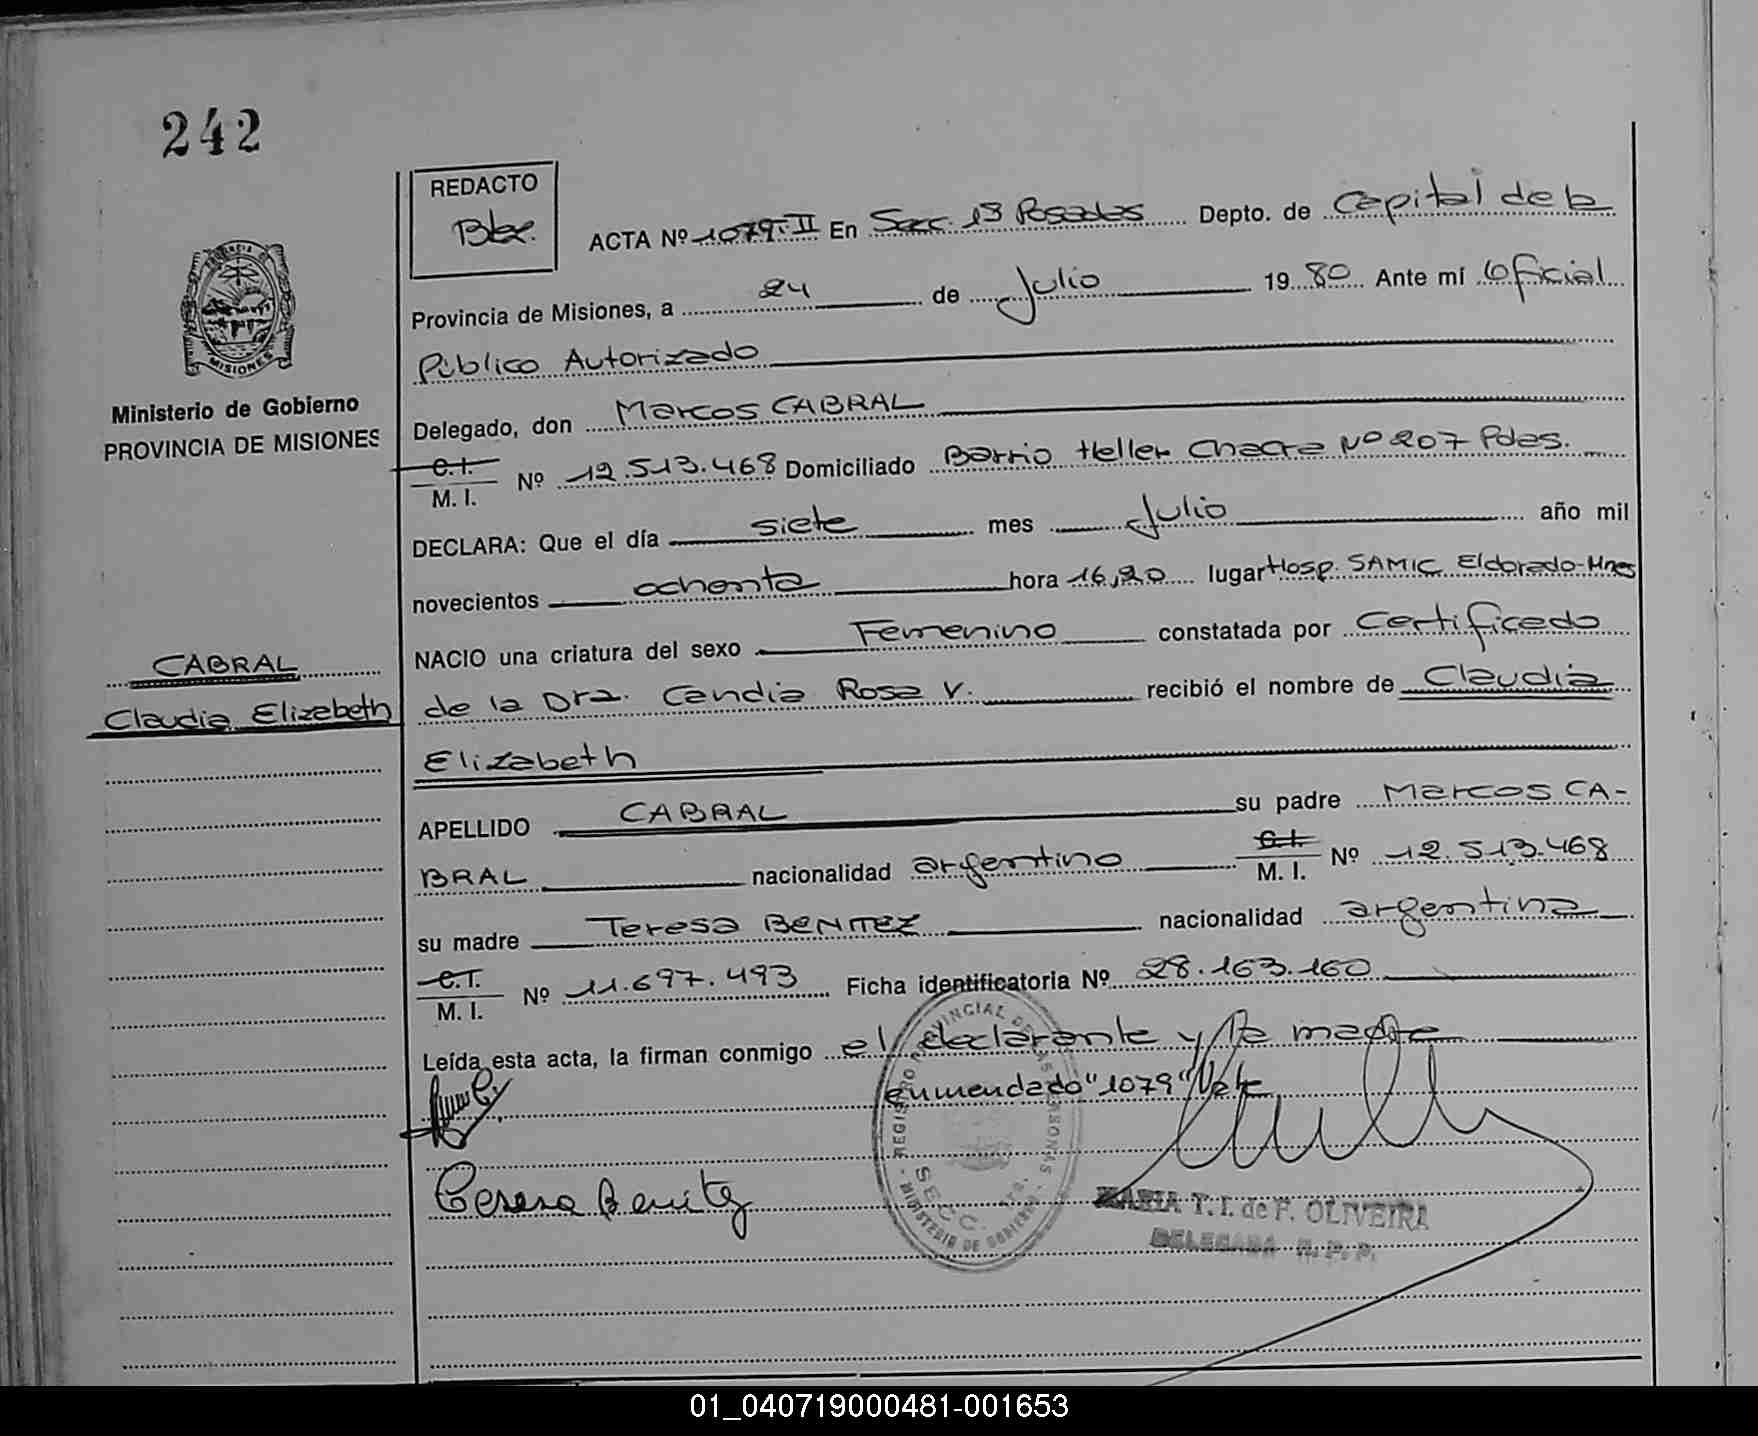 242
REDACTO
ACTA Nº 1079-II En Secc. 1ª Posadas Depto. de Capital de la
Provincia de Misiones, a 24 de Julio 1980 Ante mí Oficial
Público Autorizado
MISIONES
Ministerio de Gobierno
PROVINCIA DE MISIONES
Delegado, don Marcos CABRAL
C.I.
M. I. Nº 12.513.468 Domiciliado Barrio Heller Chacra Nº 207 Pdas.
DECLARA: Que el día siete mes Julio año mil
novecientos ochenta hora 16,20 lugar Hosp. SAMIC Eldorado-Mnes
NACIO una criatura del sexo Femenino constatada por Certificado
CABRAL
Claudia Elizabeth
de la Dra. Candia Rosa V. recibió el nombre de Claudia
Elizabeth
APELLIDO CABRAL su padre Marcos CA-
BRAL nacionalidad argentino C.I. M. I. Nº 12.513.468
su madre Teresa BENITEZ nacionalidad argentina
C.I.
M. I. Nº 11.697.493 Ficha identificatoria Nº 28.163.160
Leída esta acta, la firman conmigo el declarante y la madre
enmendado "1079" Vale
Teresa Benitez
REGISTRO PROVINCIAL DE LAS PERSONAS
SECC.
MINISTERIO DE GOBIERNO
MARIA T. I. de F. OLIVEIRA
DELEGADA R. P. P.
01_040719000481-001653